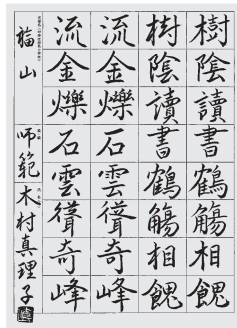 樹陰讀書鶴觴相餽
樹陰讀書鶴觴相餽
流金爍石雲聳奇峰
流金爍石雲聳奇峰
福山
師範 木村真理子